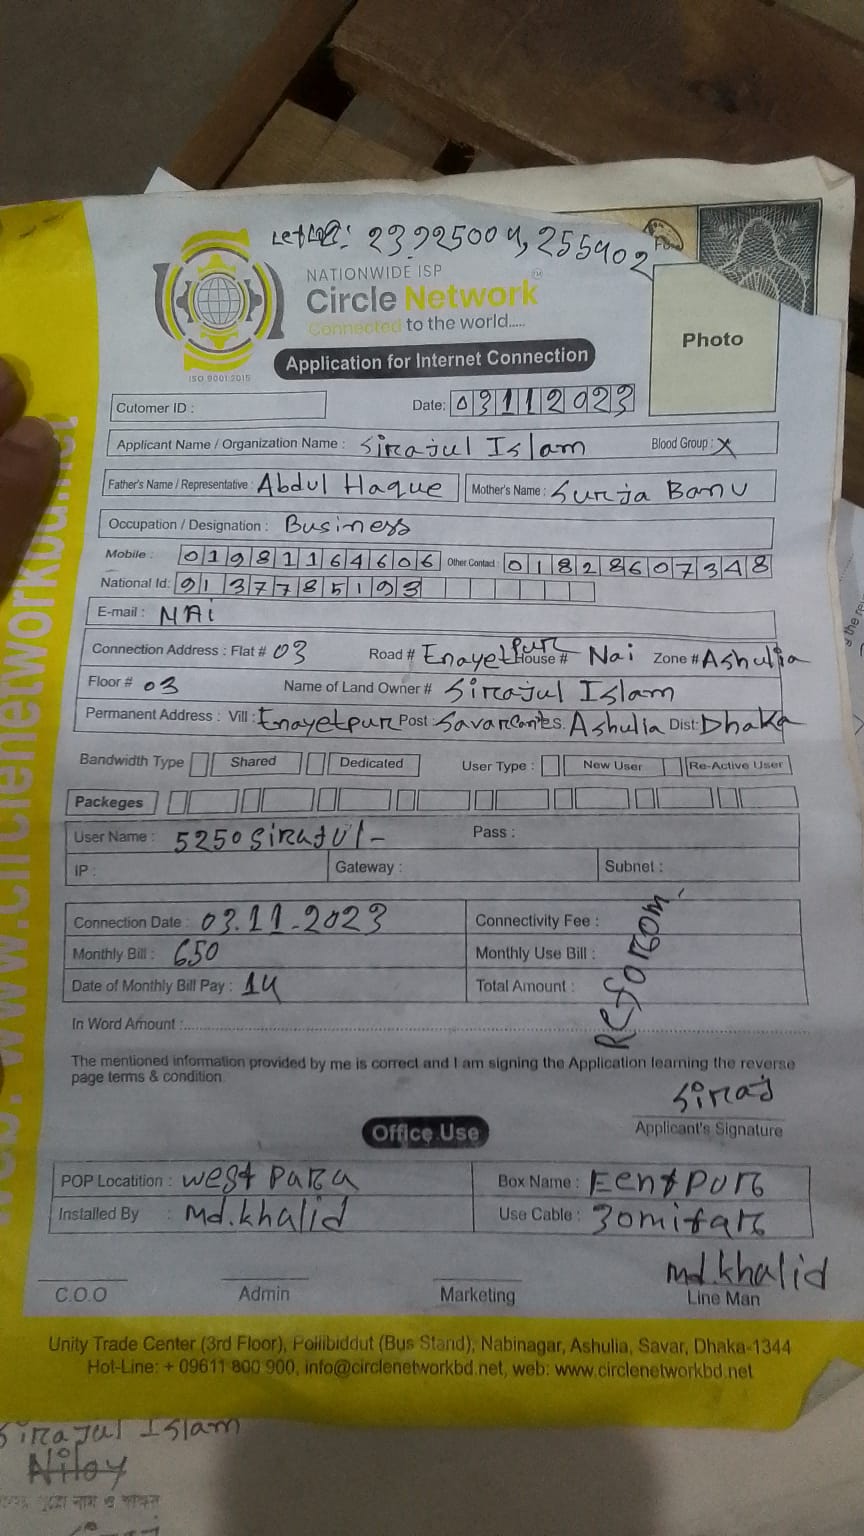 23.925004, 255902
NATIONWIDE ISP
Circle Network
Connected to the world.....
ISO 9001:2015
Application for Internet Connection
Photo
Cutomer ID :
Date: 03112023
Applicant Name / Organization Name : Sirajul Islam Blood Group : X
Father's Name / Representative : Abdul Haque Mother's Name : Surja Banu
Occupation / Designation : Business
Mobile : 01981164606 Other Contact : 01828607348
National Id: 9137785193
E-mail : NAi
Connection Address : Flat # 03 Road # Enayetpur House # Nai Zone # Ashulia
Floor # 03 Name of Land Owner # Sirajul Islam
Permanent Address : Vill : Enayetpur Post : Savarcantes. Ashulia Dist: Dhaka
Bandwidth Type Shared Dedicated User Type : New User Re-Active User
Packeges
User Name : 5250sirajul- Pass :
IP : Gateway : Subnet :
Connection Date : 03.11.2023 Connectivity Fee :
Monthly Bill : 650 Monthly Use Bill :
Date of Monthly Bill Pay : 14 Total Amount :
Reforom
In Word Amount :
The mentioned information provided by me is correct and I am signing the Application learning the reverse
page terms & condition
Siraj
Applicant's Signature
Office Use
POP Locatition : west para Box Name : Eentpur
Installed By : Md.khalid Use Cable : 30mitar
md.khalid
C.O.O Admin Marketing Line Man
Unity Trade Center (3rd Floor), Pollibiddut (Bus Stand), Nabinagar, Ashulia, Savar, Dhaka-1344
Hot-Line: + 09611 800 900, info@circlenetworkbd.net, web: www.circlenetworkbd.net
Web: www.circlenetworkbd.net
Sirajul Islam
Niloy